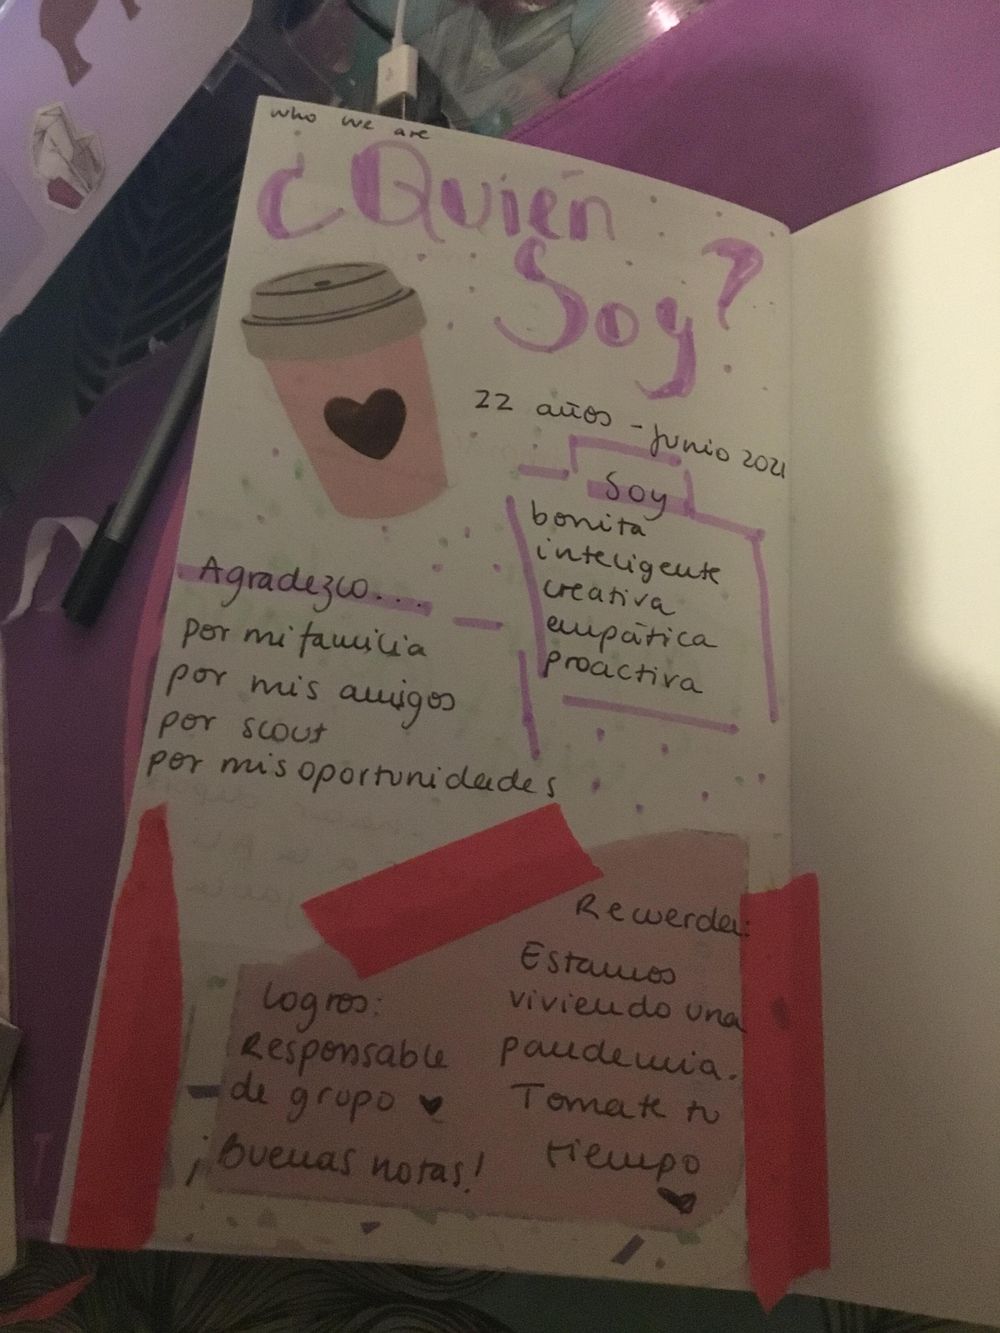 who we are
¿Quién
Soy?
22 años - Junio 2021
Soy
bonita
inteligente
creativa
empática
proactiva
Agradezco...
por mi familia
por mis amigos
por scout
por mis oportunidades
Logros:
Responsable
de grupo ♥
¡Buenas notas!
Recuerda:
Estamos
viviendo una
pandemia.
Tomate tu
tiempo
♥